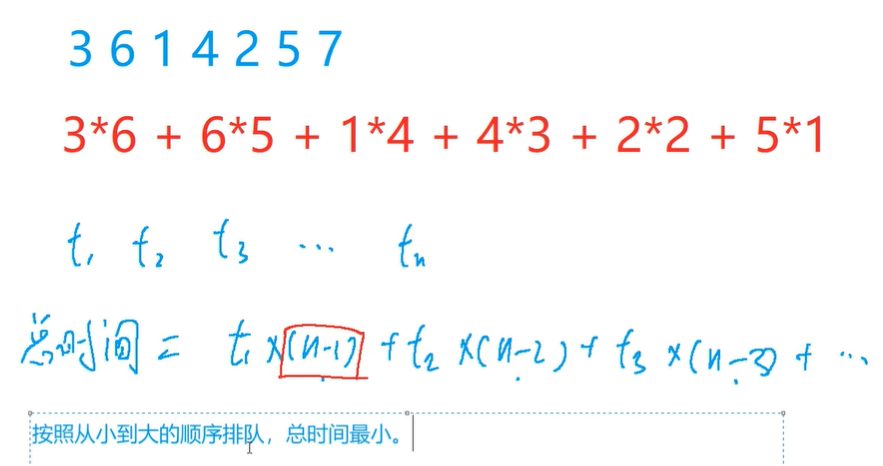 3 6 1 4 2 5 7
3*6 + 6*5 + 1*4 + 4*3 + 2*2 + 5*1
t₁ t₂ t₃ … tₙ
总时间 = t₁×(n-1) + t₂×(n-2) + t₃×(n-3) + …
按照从小到大的顺序排队，总时间最小。